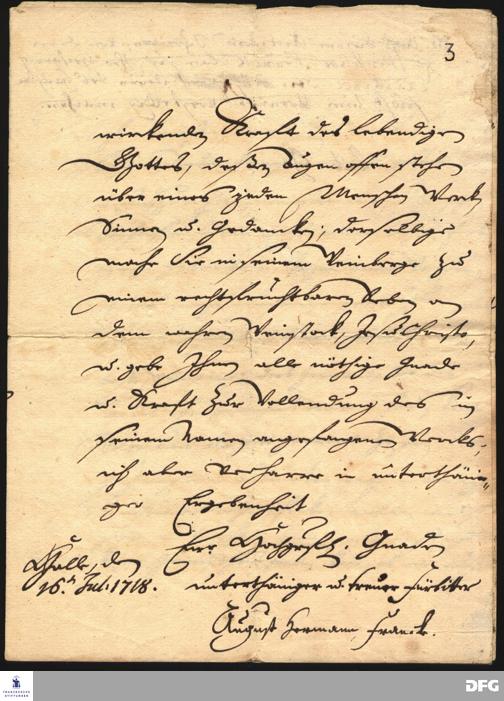 3
wirckenden Krafft des lebendigen
Gottes, deßen Augen offen stehen
über eines jeden Menschen Werck,
Sinnen u. Gedancken; derselbige
mache Sie in seinem Weinberge zu
einem rechtfruchtbaren Reben an
dem wahren Weinstock, Jesu Christo,
u. gebe Ihnen alle nöthige Gnade
u. Krafft zur Vollendung des in
seinem Namen angefangenen Wercks;
ich aber verharre in unterthäni-
ger Ergebenheit
Ew. Hochgrfl. Gnaden
Halle, den
16. Jul. 1718.
unterthäniger u. treuer Fürbitter
August Hermann Franck.
FRANCKESCHE STIFTUNGEN
DFG